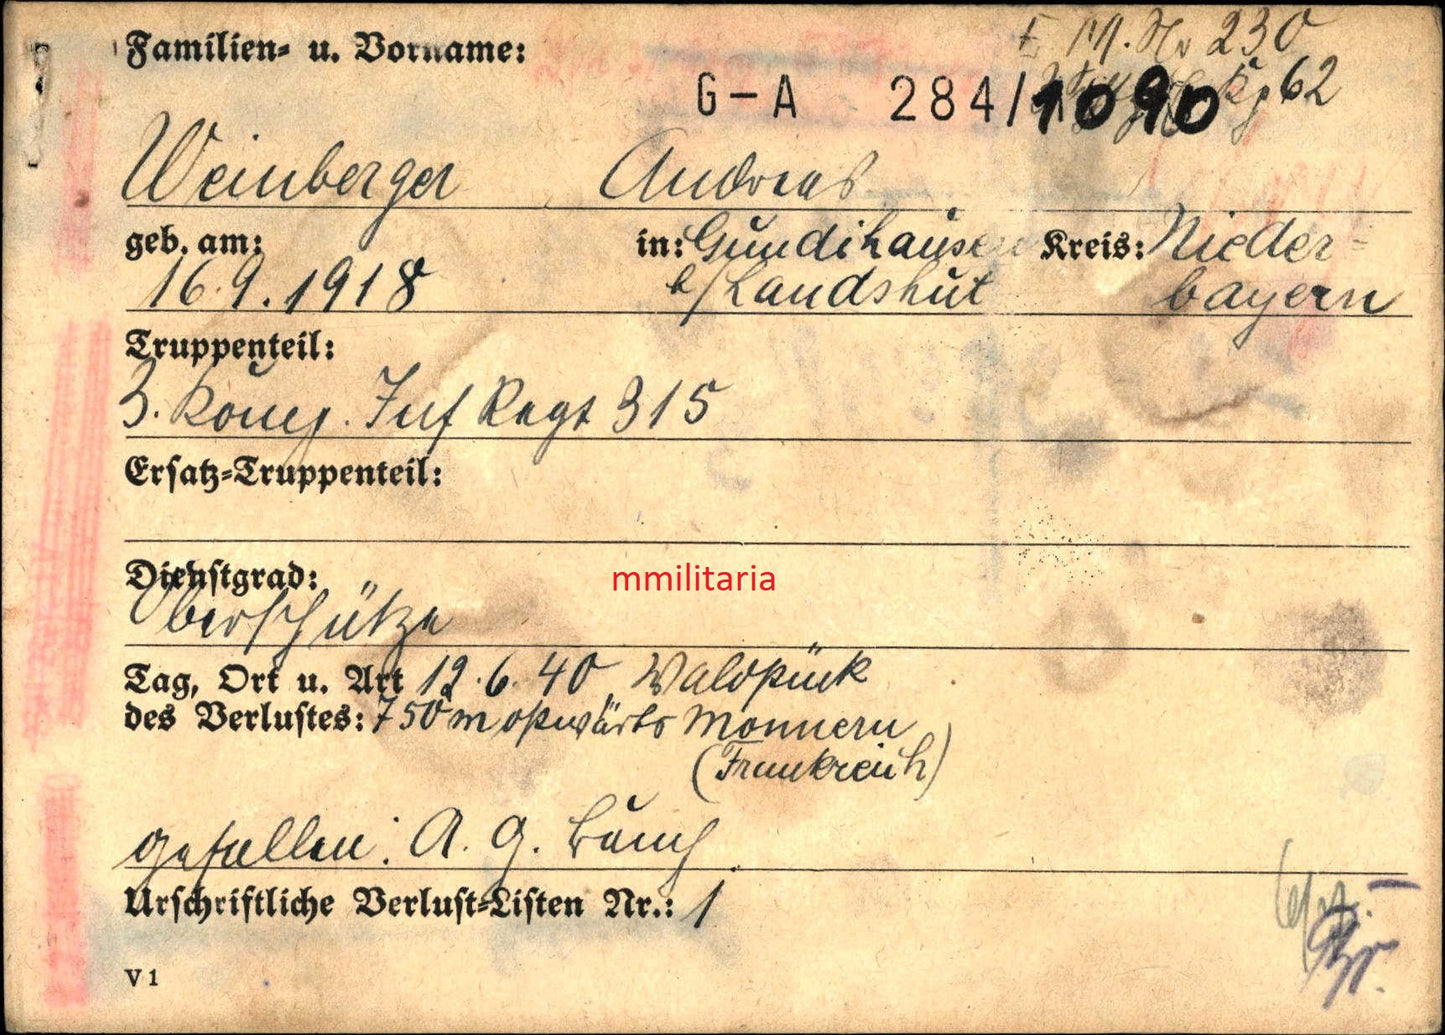 Familien- u. Vorname:
E. M. Nr 230
G-A 284/1090
62
Weinberger Andreas
geb. am: in: Gundihausen Kreis: Nieder-
16.9.1918 b/Landshut bayern
Truppenteil:
3. Komp. Inf Regt 315
Ersatz-Truppenteil:
Dienstgrad:
Oberschütze
mmilitaria
Tag, Ort u. Art 12.6.40 Waldstück
des Verlustes: 750 m ostwärts Monnern
(Frankreich)
gefallen: A. G. Bauch
Urschriftliche Verlust-Listen Nr.: 1
V 1